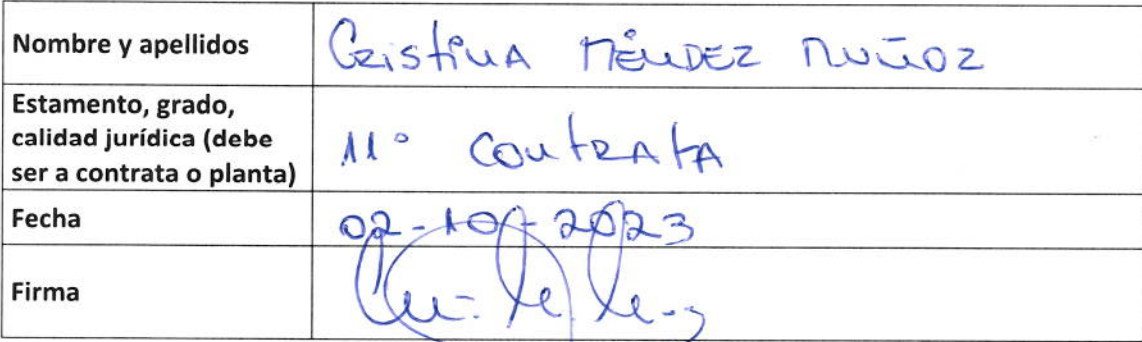 Nombre y apellidos
Cristina Méndez Muñoz
Estamento, grado,
calidad jurídica (debe
ser a contrata o planta)
11° contrata
Fecha
02-10-2023
Firma